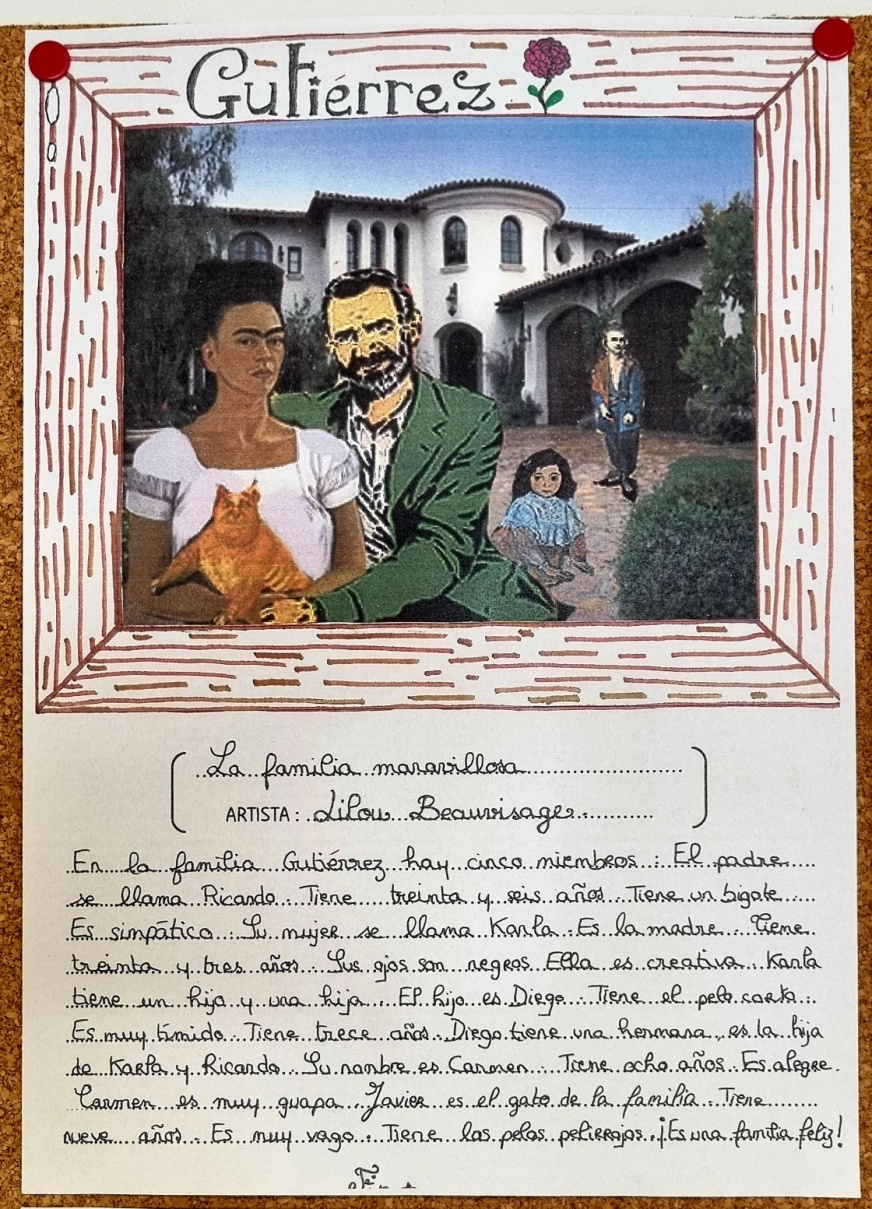 Gutiérrez
La familia maravillosa
ARTISTA: Lilou Beauvisage
En la familia Gutiérrez hay cinco miembros. El padre
se llama Ricardo. Tiene treinta y seis años. Tiene un bigote.
Es simpático. Su mujer se llama Karla. Es la madre. Tiene
treinta y tres años. Sus ojos son negros. Ella es creativa. Karla
tiene un hijo y una hija. El hijo es Diego. Tiene el pelo corto.
Es muy tímido. Tiene trece años. Diego tiene una hermana, es la hija
de Karla y Ricardo. Su nombre es Carmen. Tiene ocho años. Es alegre.
Carmen es muy guapa. Javier es el gato de la familia. Tiene
nueve años. Es muy vago. Tiene los pelos pelirrojos. ¡Es una familia feliz!